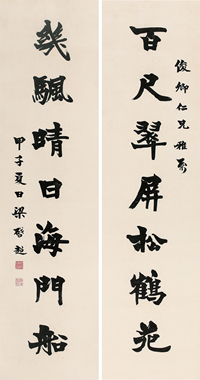 俊卿仁兄雅屬
百尺翠屏松鶴苑
幾颿晴日海門船
甲子夏日梁啓超